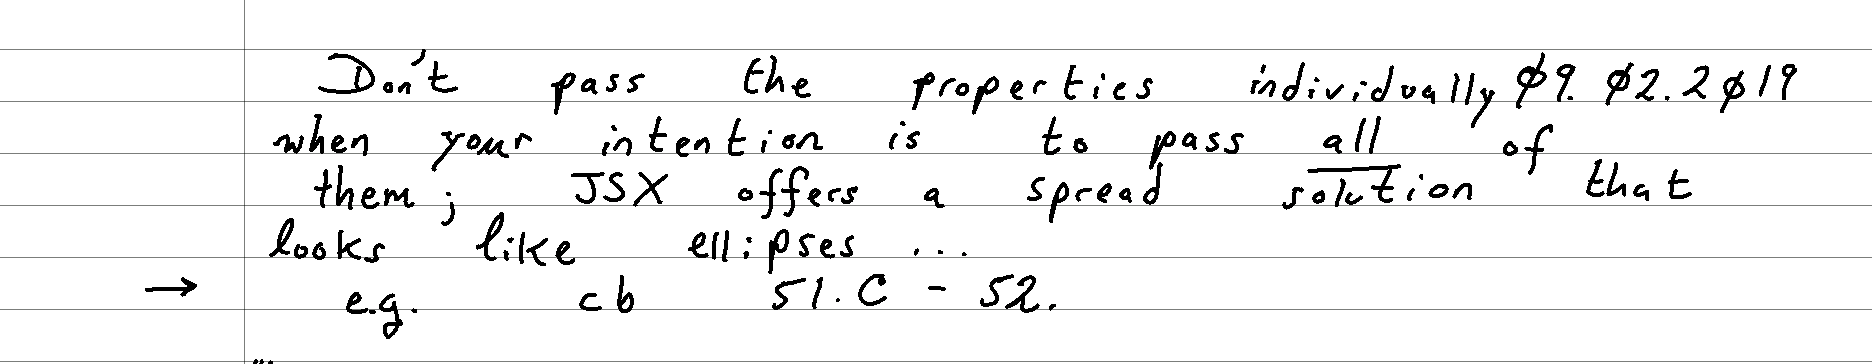 Don't pass the properties individually ø9. ø2.2ø19
when your intention is to pass all of
them; JSX offers a spread solution that
looks like ellipses ...
→ e.g. cb 51.C - 52.